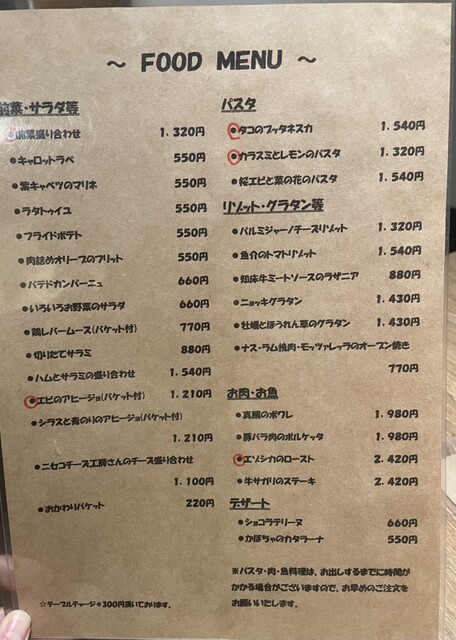 ～ FOOD MENU ～
前菜・サラダ等
●前菜盛り合わせ 1.320円
●キャロットラペ 550円
●紫キャベツのマリネ 550円
●ラタトゥイユ 550円
●フライドポテト 550円
●肉詰めオリーブのフリット 550円
●パテドカンパーニュ 660円
●いろいろお野菜のサラダ 660円
●鶏レバームース(バケット付) 770円
●切りたてサラミ 880円
●ハムとサラミの盛り合わせ 1.540円
●エビのアヒージョ(バケット付) 1.210円
●シラスと青のりのアヒージョ(バケット付)
1.210円
●ニセコチーズ工房さんのチーズ盛り合わせ
1.100円
●おかわりバケット 220円
☆テーブルチャージ＊300円頂いております。
パスタ
●タコのプッタネスカ 1.540円
●カラスミとレモンのパスタ 1.320円
●桜エビと菜の花のパスタ 1.540円
リゾット・グラタン等
●パルミジャーノチーズリゾット 1.320円
●魚介のトマトリゾット 1.540円
●知床牛ミートソースのラザニア 880円
●ニョッキグラタン 1.430円
●牡蠣とほうれん草のグラタン 1.430円
●ナス・ラム挽肉・モッツァレッラのオーブン焼き
770円
お肉・お魚
●真鯛のポワレ 1.980円
●豚バラ肉のポルケッタ 1.980円
●エゾシカのロースト 2.420円
●牛サガリのステーキ 2.420円
デザート
●ショコラテリーヌ 660円
●かぼちゃのカタラーナ 550円
※パスタ・肉・魚料理は、お出しするまでに時間が
かかる場合がございますので、お早めのご注文を
お願いいたします。